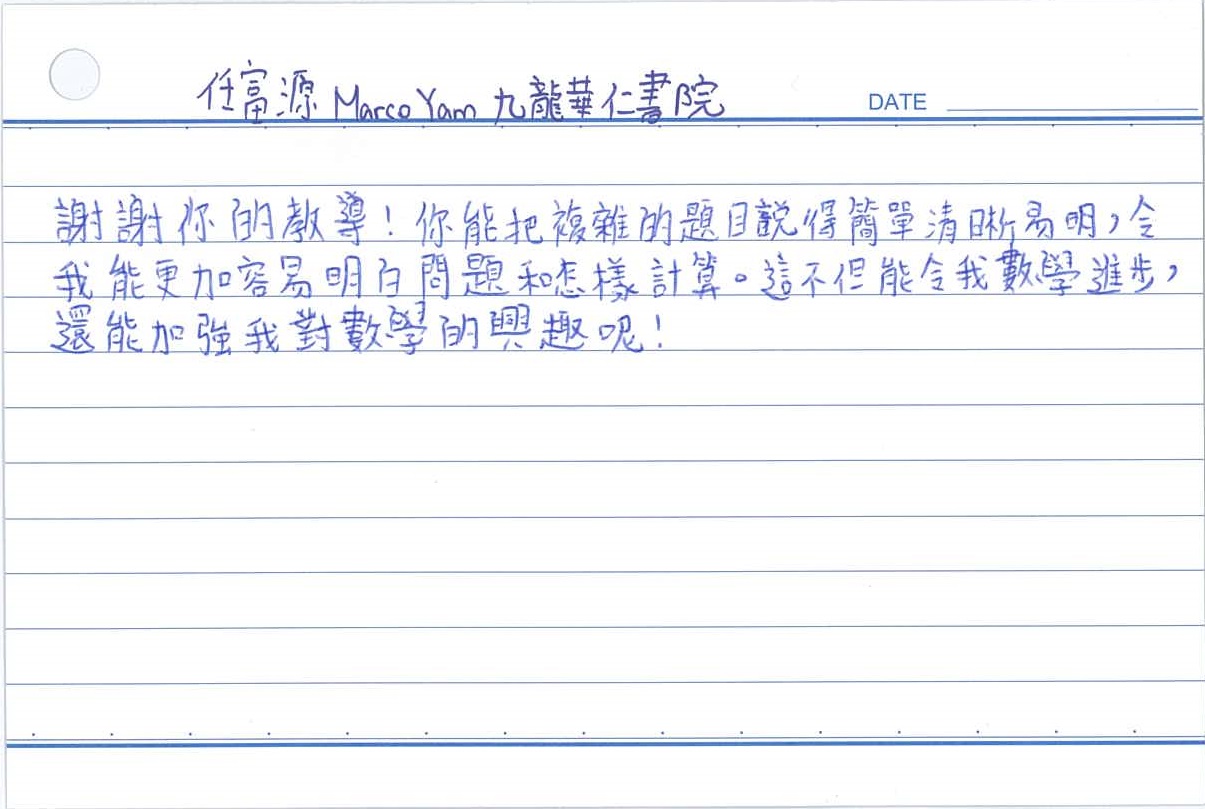 任富源 Marco Yam 九龍華仁書院
DATE
謝謝你的教導！你能把複雜的題目說得簡單清晰易明，令
我能更加容易明白問題和怎樣計算。這不但能令我數學進步，
還能加強我對數學的興趣呢！